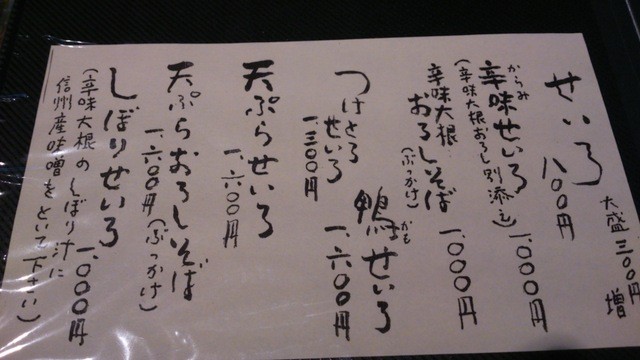 大盛三〇〇円増
せいろ 八〇〇円
からみ
辛味せいろ 一、〇〇〇円
(辛味大根おろし別添え)
辛味大根
おろしそば 一、〇〇〇円
(ぶっかけ)
かも
鴨せいろ 一、六〇〇円
つけとろ
せいろ
一、三〇〇円
天ぷらせいろ
一、六〇〇円
天ぷらおろしそば
一、六〇〇円(ぶっかけ)
しぼりせいろ 一、〇〇〇円
(辛味大根のしぼり汁に
信州産味噌をといて下さい)